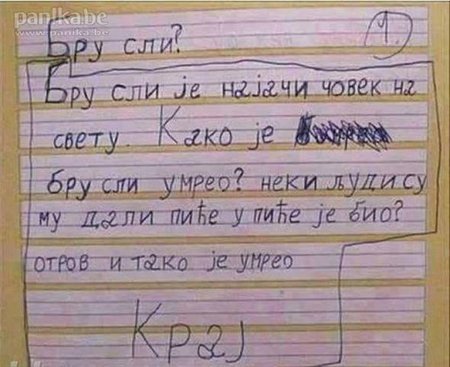 panika.be
www.panika.be
1.
Бру сли?
Бру сли је најачи човек на
свету. Како је
бру сли умрео? неки људи су
му дали пиће у пиће је био?
отров и тако је умрео
Крај